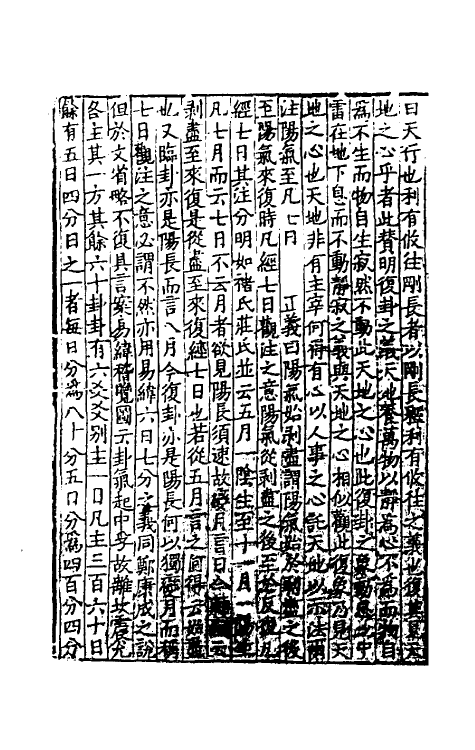 曰天行也利有攸往剛長者以剛長釋利有攸往之義也復其見天
地之心乎者此贊明復卦之義天地養萬物以靜為心不為而物自
為不生而物自生寂然不動此天地之心也此復卦之象動息地中
雷在地下息而不動靜寂之義與天地之心相似觀此復象乃見天
地之心也天地非有主宰何得有心以人事之心託天地以示法爾
注陽氣至凡七日　正義曰陽氣始剥盡謂陽氣始於剥盡之後
至陽氣來復時凡經七日觀注之意陽氣從剥盡之後至於反復凡
經七日其注分明如褚氏莊氏並云五月一陰生至十一月一陽生
凡七月而云七日不云月者欲見陽長須速故變月言日今
剥盡至來復是從盡至來復經七日也若從五月言之何得云始盡
也又臨卦亦是陽長而言八月今復卦亦是陽長何以獨變月而稱
七日觀注之意必謂不然亦用易緯六日七分之義同鄭康成之說
但於文省略不復具言案易緯稽覽圖云卦氣起中孚故離坎震兌
各主其一方其餘六十卦卦有六爻爻别主一日凡主三百六十日
餘有五日四分日之一者每日分為八十分五日分為四百分四分